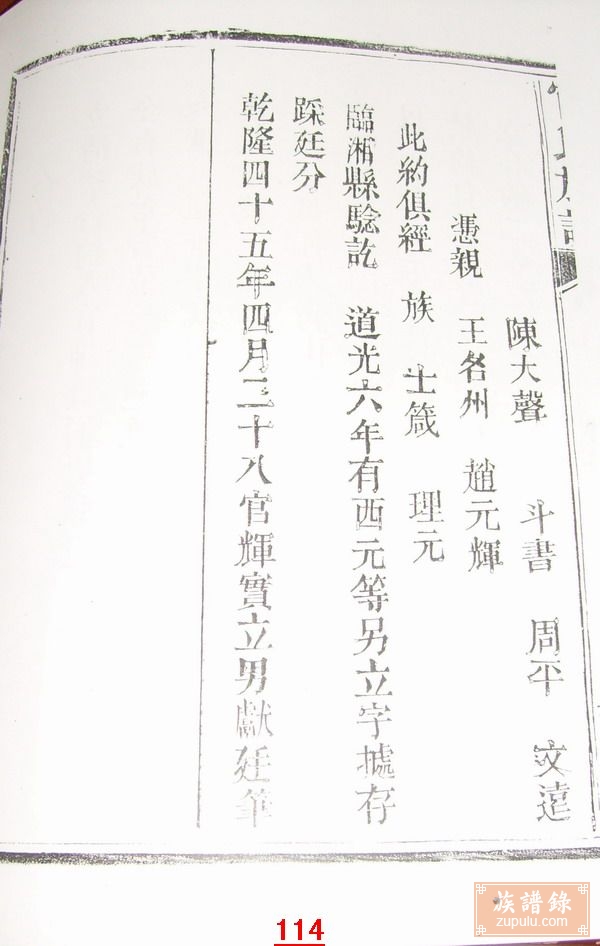 氏族譜
陳大聲 斗書 周平 文遠
憑親 王名州 趙元輝
此約俱經 族 士箴 理元
臨湘縣騐訖 道光六年有西元等另立字據存
踩廷分
乾隆四十五年四月二十八官輝實立男獻廷筆
114
族譜錄
zupulu.com